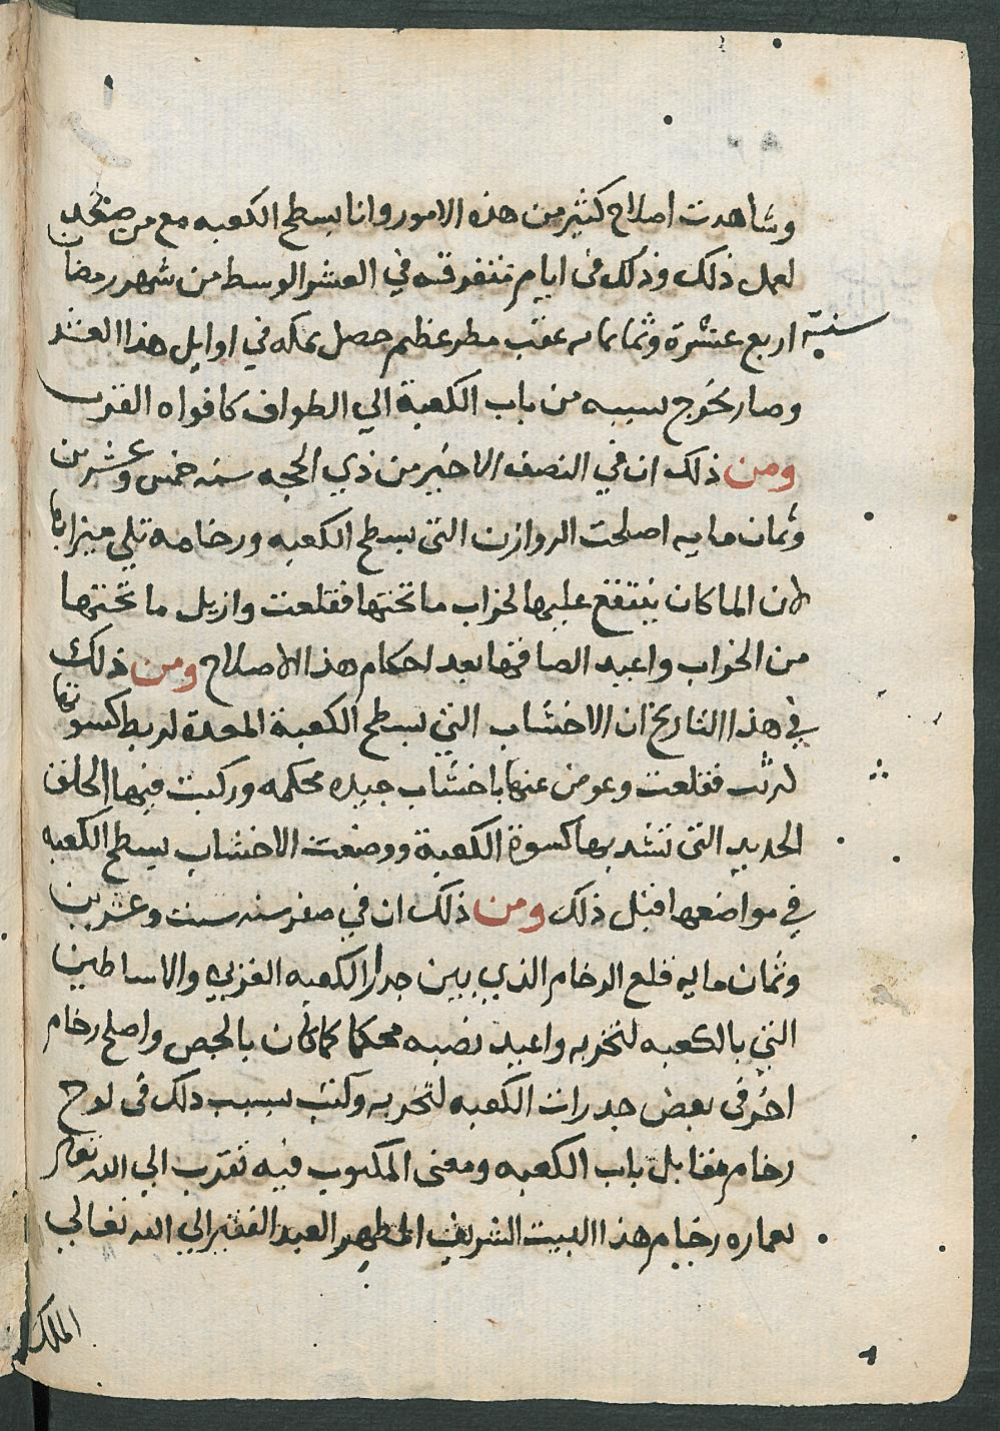 ١
وشاهدت اصلاح كثير من هذه الامور وانا بسطح الكعبه مع من صعد
لعمل ذلك وذلك فى ايام متفرقه في العشر الوسط من شهر رمضان
سنة اربع عشرة وثمانمايه عقب مطر عظيم حصل بمكه في اوايل هذا العشر
وصار يخرج بسببه من باب الكعبة الي الطواف كافواه القرب
ومن ذلك ان في النصف الاخير من ذي الحجه سنه خمس وعشرين
وثمان مايه اصلحت الروازن التى بسطح الكعبه ورخامة تلي ميزابها
لان الما كان ينتقع عليها لخراب ما تحتها فقلعت وازيل ما تحتها
من الخراب واعيد الصاقها بعد احكام هذا الاصلاح ومن ذلك
في هذا التاريخ ان الاخشاب التي بسطح الكعبة المعدة لربط كسوتها
لرثت فقلعت وعوض عنها باخشاب جيده محكمه وركبت فيها الحلق
الحديد التى تشد بها كسوة الكعبة ووضعت الاخشاب بسطح الكعبه
في مواضعها قبل ذلك ومن ذلك ان في صفر سنه ست وعشرين
وثمان مايه قلع الرخام الذي بين جدار الكعبه الغربي والاساطين
التي بالكعبه لتخربه واعيد نصبه محكما كما كان بالجص واصلح رخام
اخر فى بعض جدرات الكعبه لتخربه وكتب بسبب ذلك فى لوح
رخام مقابل باب الكعبه ومعنى المكتوب فيه تقرب الي الله تعالى
بعماره رخام هذا البيت الشريف المطهر العبد الفقير الي الله تعالي
الملك